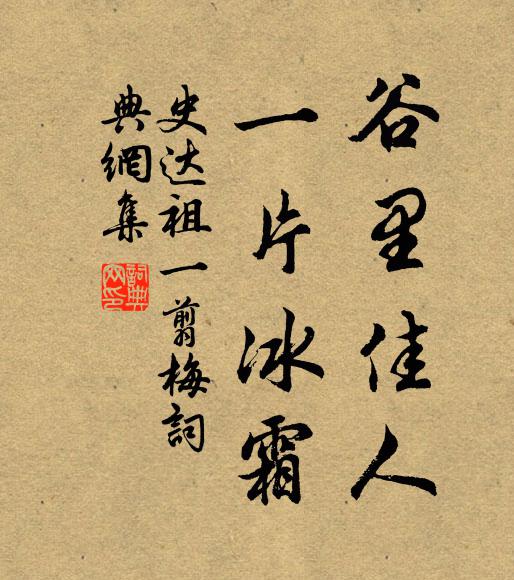 谷里佳人
一片冰霜
史达祖一剪梅詞
典網集
詞典網印